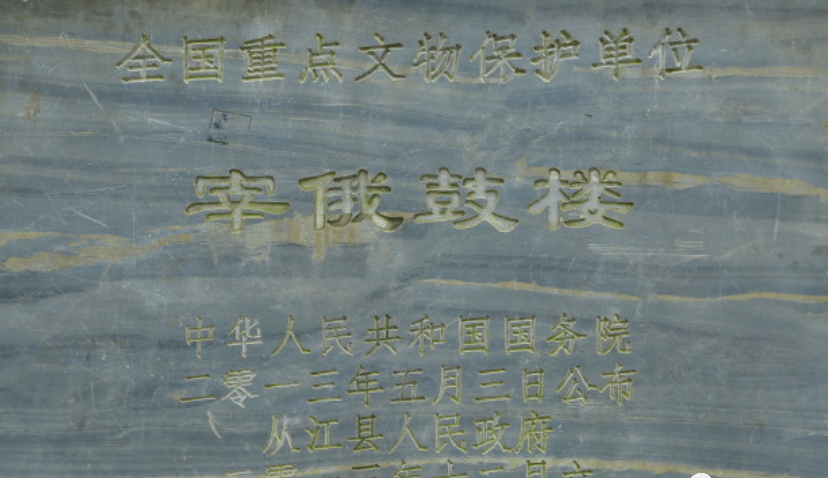 全国重点文物保护单位
宰俄鼓楼
中华人民共和国国务院
二零一三年五月三日公布
从江县人民政府